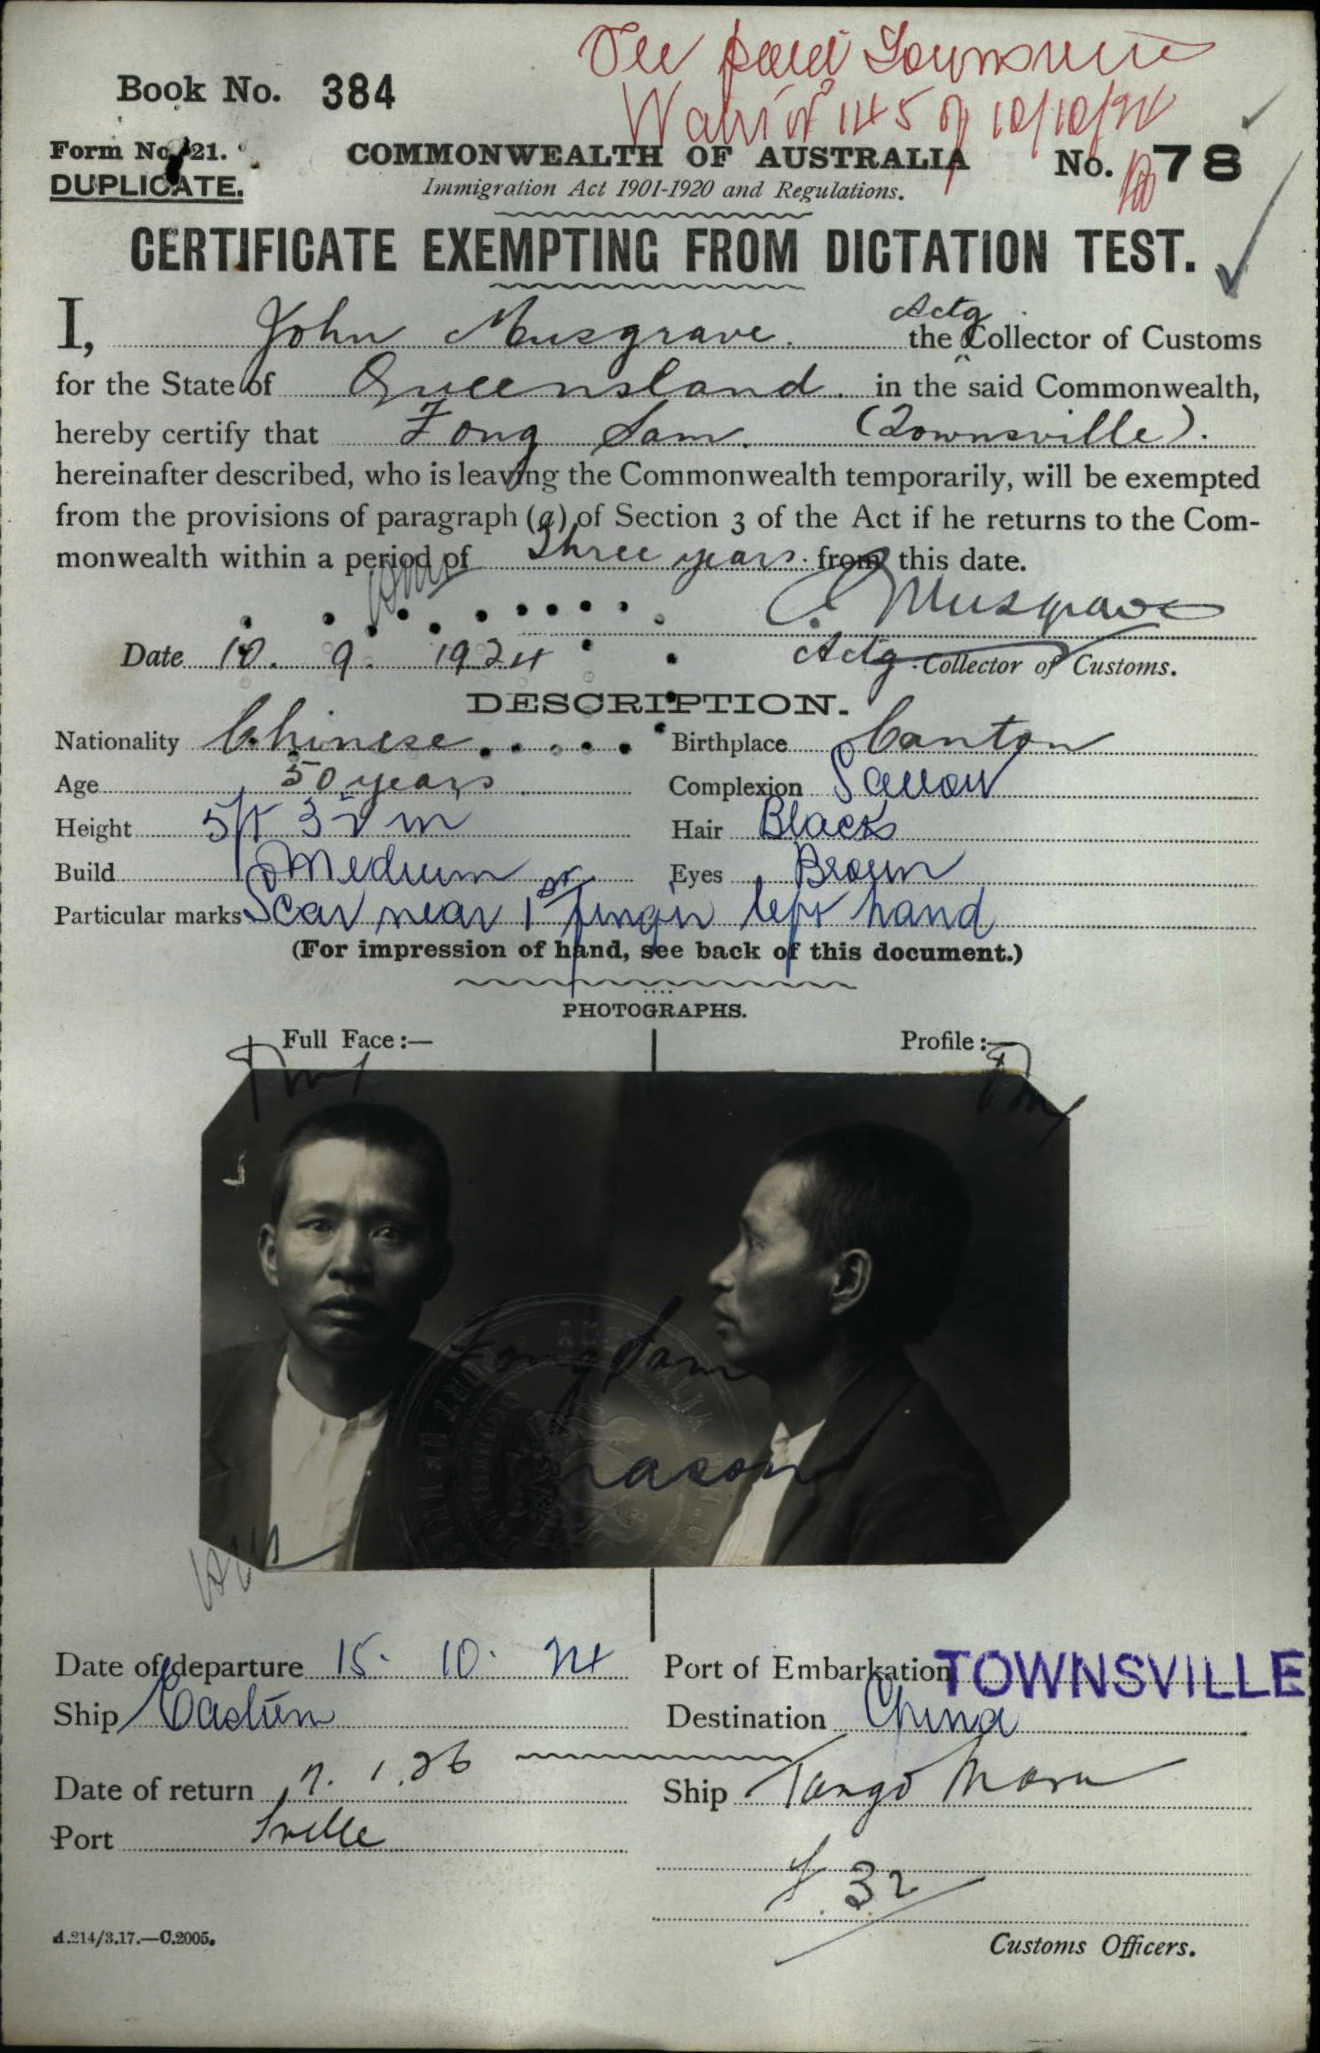 Fee paid Townsville
145 of 10/10/24
Book No. 384
Form No. 21.
DUPLICATE.
COMMONWEALTH OF AUSTRALIA
No. 78
Immigration Act 1901-1920 and Regulations.
CERTIFICATE EXEMPTING FROM DICTATION TEST.
I, John Musgrave. the Actg Collector of Customs
for the State of Queensland. in the said Commonwealth,
hereby certify that Fong Sam. (Townsville).
hereinafter described, who is leaving the Commonwealth temporarily, will be exempted
from the provisions of paragraph (a) of Section 3 of the Act if he returns to the Com-
monwealth within a period of Three years from this date.
Musgrave
Date 10. 9. 1924
Actg Collector of Customs.
DESCRIPTION.
Nationality Chinese
Birthplace Canton
Age 50 years
Complexion Sallow
Height 5ft 3
Hair Black
Build Medium
Eyes Brown
Particular marks Scar near 1st finger left hand
(For impression of hand, see back of this document.)
PHOTOGRAPHS.
Full Face:—
Profile:—
Fong Sam
Date of departure 15. 10. 24
Port of Embarkation TOWNSVILLE
Ship Eastern
Destination China
Date of return 7. 1. 26
Ship Tango Maru
Port Tville
32
A.214/3.17.—C.2005.
Customs Officers.